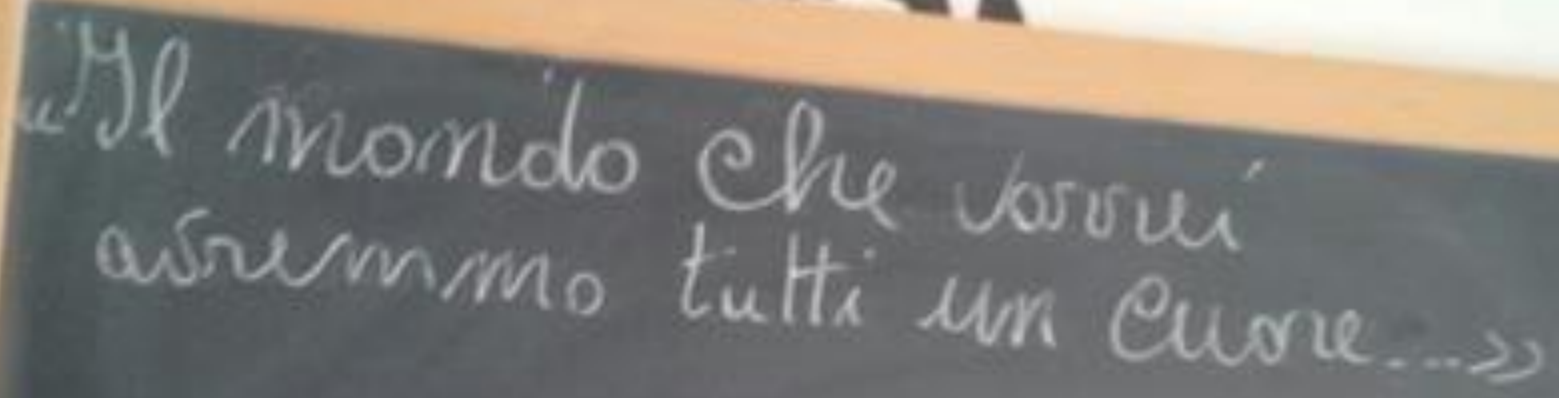 «Il mondo che vorrei
avremmo tutti un cuore...»